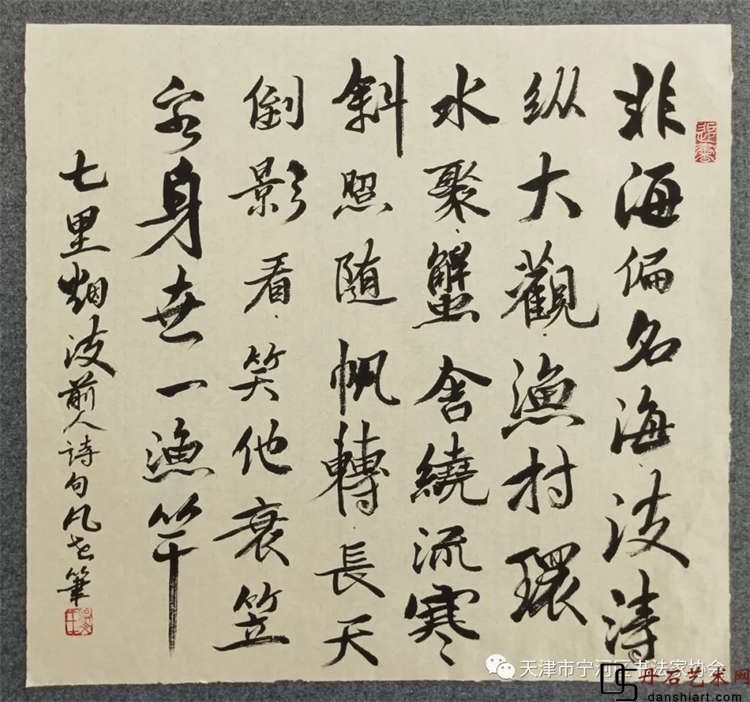 非海偏名海波涛
纵大觀渔村環
水聚蟹舍繞流寒
斜照随帆轉長天
倒影看笑他衰笠
客身世一渔竿
七里烟波前人诗句凡筆
天津市宁河区书法家协会
丹石艺术网
danshiart.com